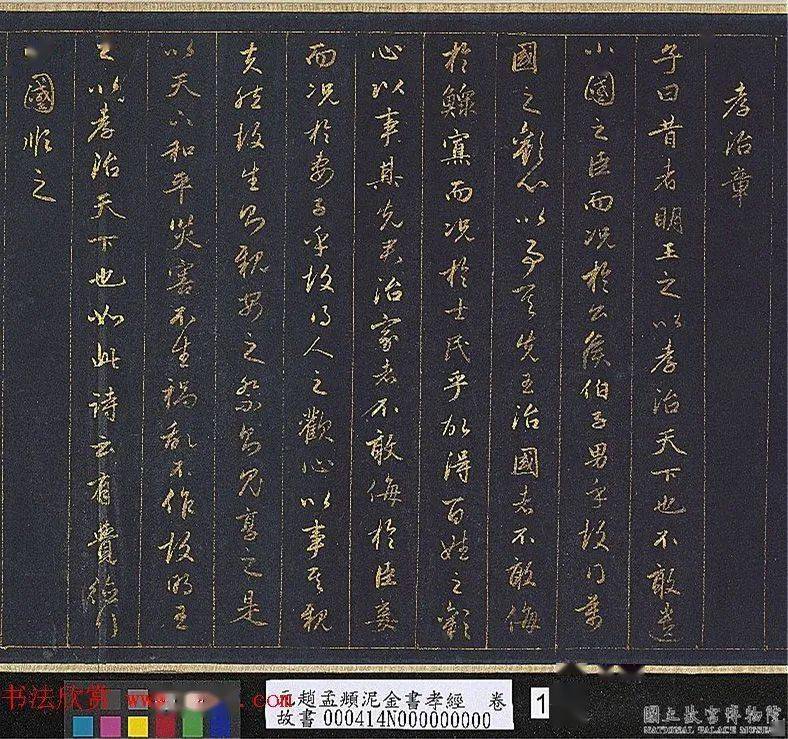 孝治章
子曰昔者明王之以孝治天下也不敢遺
小國之臣而况於公侯伯子男乎故得萬
國之歡心以事其先王治國者不敢侮
於鰥寡而况於士民乎故得百姓之歡
心以事其先君治家者不敢侮於臣妾
而况於妻子乎故得人之歡心以事其親
夫然故生則親安之祭則鬼享之是
以天下和平災害不生禍亂不作故明王
之以孝治天下也如此詩云有覺德行
國順之
书法欣赏 www.
元趙孟頫泥金書孝經 卷
故書000414N000000000
1
國立故宮博物院
NATIONAL PALACE MUSEUM